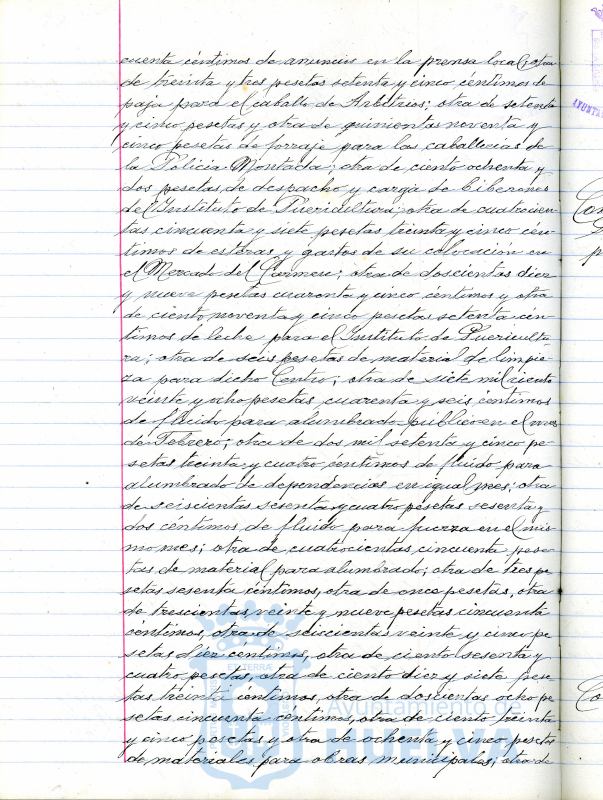 cuenta céntimos de anuncios en la prensa local; otra
de treinta y tres pesetas setenta y cinco céntimos de
paja para el caballo de Arbitrios; otra de setenta
y cinco pesetas y otra de quinientas noventa y
cinco pesetas de forraje para las caballerias de
la Policia Montada; otra de ciento ochenta y
dos pesetas de despacho y carga de biberones
del Instituto de Puericultura; otra de cuatrocien-
tas cincuenta y siete pesetas treinta y cinco cén-
timos de esteras y gastos de su colocación en
el Mercado del Carmen; otra de doscientas diez
y nueve pesetas cuarenta y cinco céntimos y otra
de ciento noventa y cinco pesetas setenta cén-
timos de leche para el Instituto de Puericultu-
ra; otra de seis pesetas de material de limpie-
za para dicho Centro; otra de siete mil ciento
veinte y ocho pesetas cuarenta y seis céntimos
de flúido para alumbrado público en el mes
de Febrero; otra de dos mil setenta y cinco pe-
setas treinta y cuatro céntimos de flúido para
alumbrado de dependencias en igual mes; otra
de seiscientas sesenta y cuatro pesetas sesenta y
dos céntimos de fluido para fuerza en el mis-
mo mes; otra de cuatrocientas cincuenta pese-
tas de material para alumbrado; otra de tres pe-
setas sesenta céntimos, otra de once pesetas, otra
de trescientas veinte y nueve pesetas cincuenta
céntimos, otra de seiscientas veinte y cinco pe-
setas diez céntimos, otra de ciento sesenta y
cuatro pesetas, otra de ciento diez y siete pese-
tas treinta céntimos, otra de doscientas ocho pe-
setas cincuenta céntimos, otra de ciento treinta
y cinco pesetas y otra de ochenta y cinco pesetas
de materiales para obras municipales; otra de
ET TERRÆ
Ayuntamiento de
HUELVA